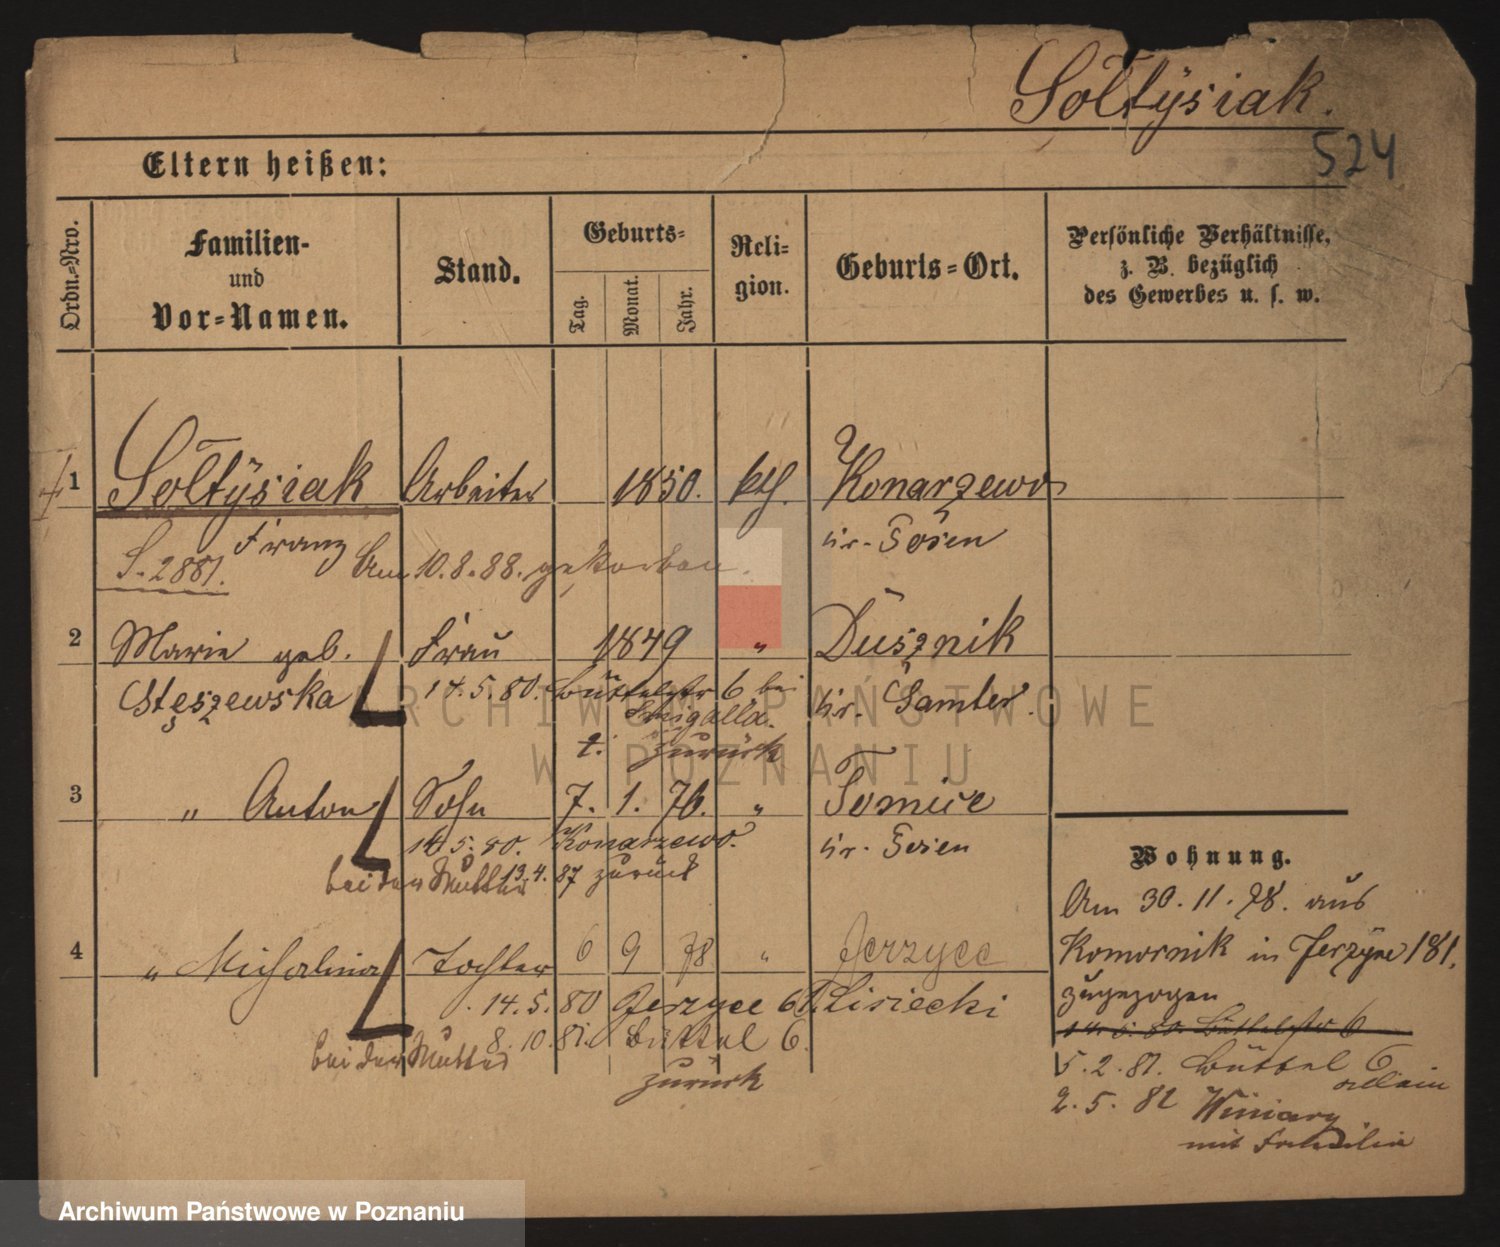 Sołtysiak.
524
Eltern heißen:
Ordn.=Nro.
Familien-
und
Vor=Namen.
Stand.
Geburts=
Tag.
Monat.
Jahr.
Reli=
gion.
Geburts=Ort.
Persönliche Verhältnisse,
z. B. bezüglich
des Gewerbes u. s. w.
1 Sołtysiak Arbeiter 1850. kth. Konarzewo
Franz Kr. Posen
S. 2881. Am 10.8.88. gestorben.
2 Marie geb. Frau 1849 " Dusznik
Stęszewska 14.5.80. Büttelstr 6 bei Kr. Samter.
zurück
3 " Anton Sohn 7. 1. 76. " Tomice
14.5.80. Konarzewo. Kr. Posen
bei der Mutter 13.4.87 zurück
4 " Michalina Tochter 6 9 78 " Jerzyce
14.5.80 Jerzyce 61. Lisiecki
bei der Mutter 8.10.81. Büttel 6.
zurück
Wohnung.
Am 30.11.78. aus
Komornik in Jerzyce 181.
zugezogen
14.5.80. Büttelstr 6
5.2.81. Büttel 6
allein
2.5.82 Winiary
mit Familie
ARCHIWUM PAŃSTWOWE
W POZNANIU
Archiwum Państwowe w Poznaniu